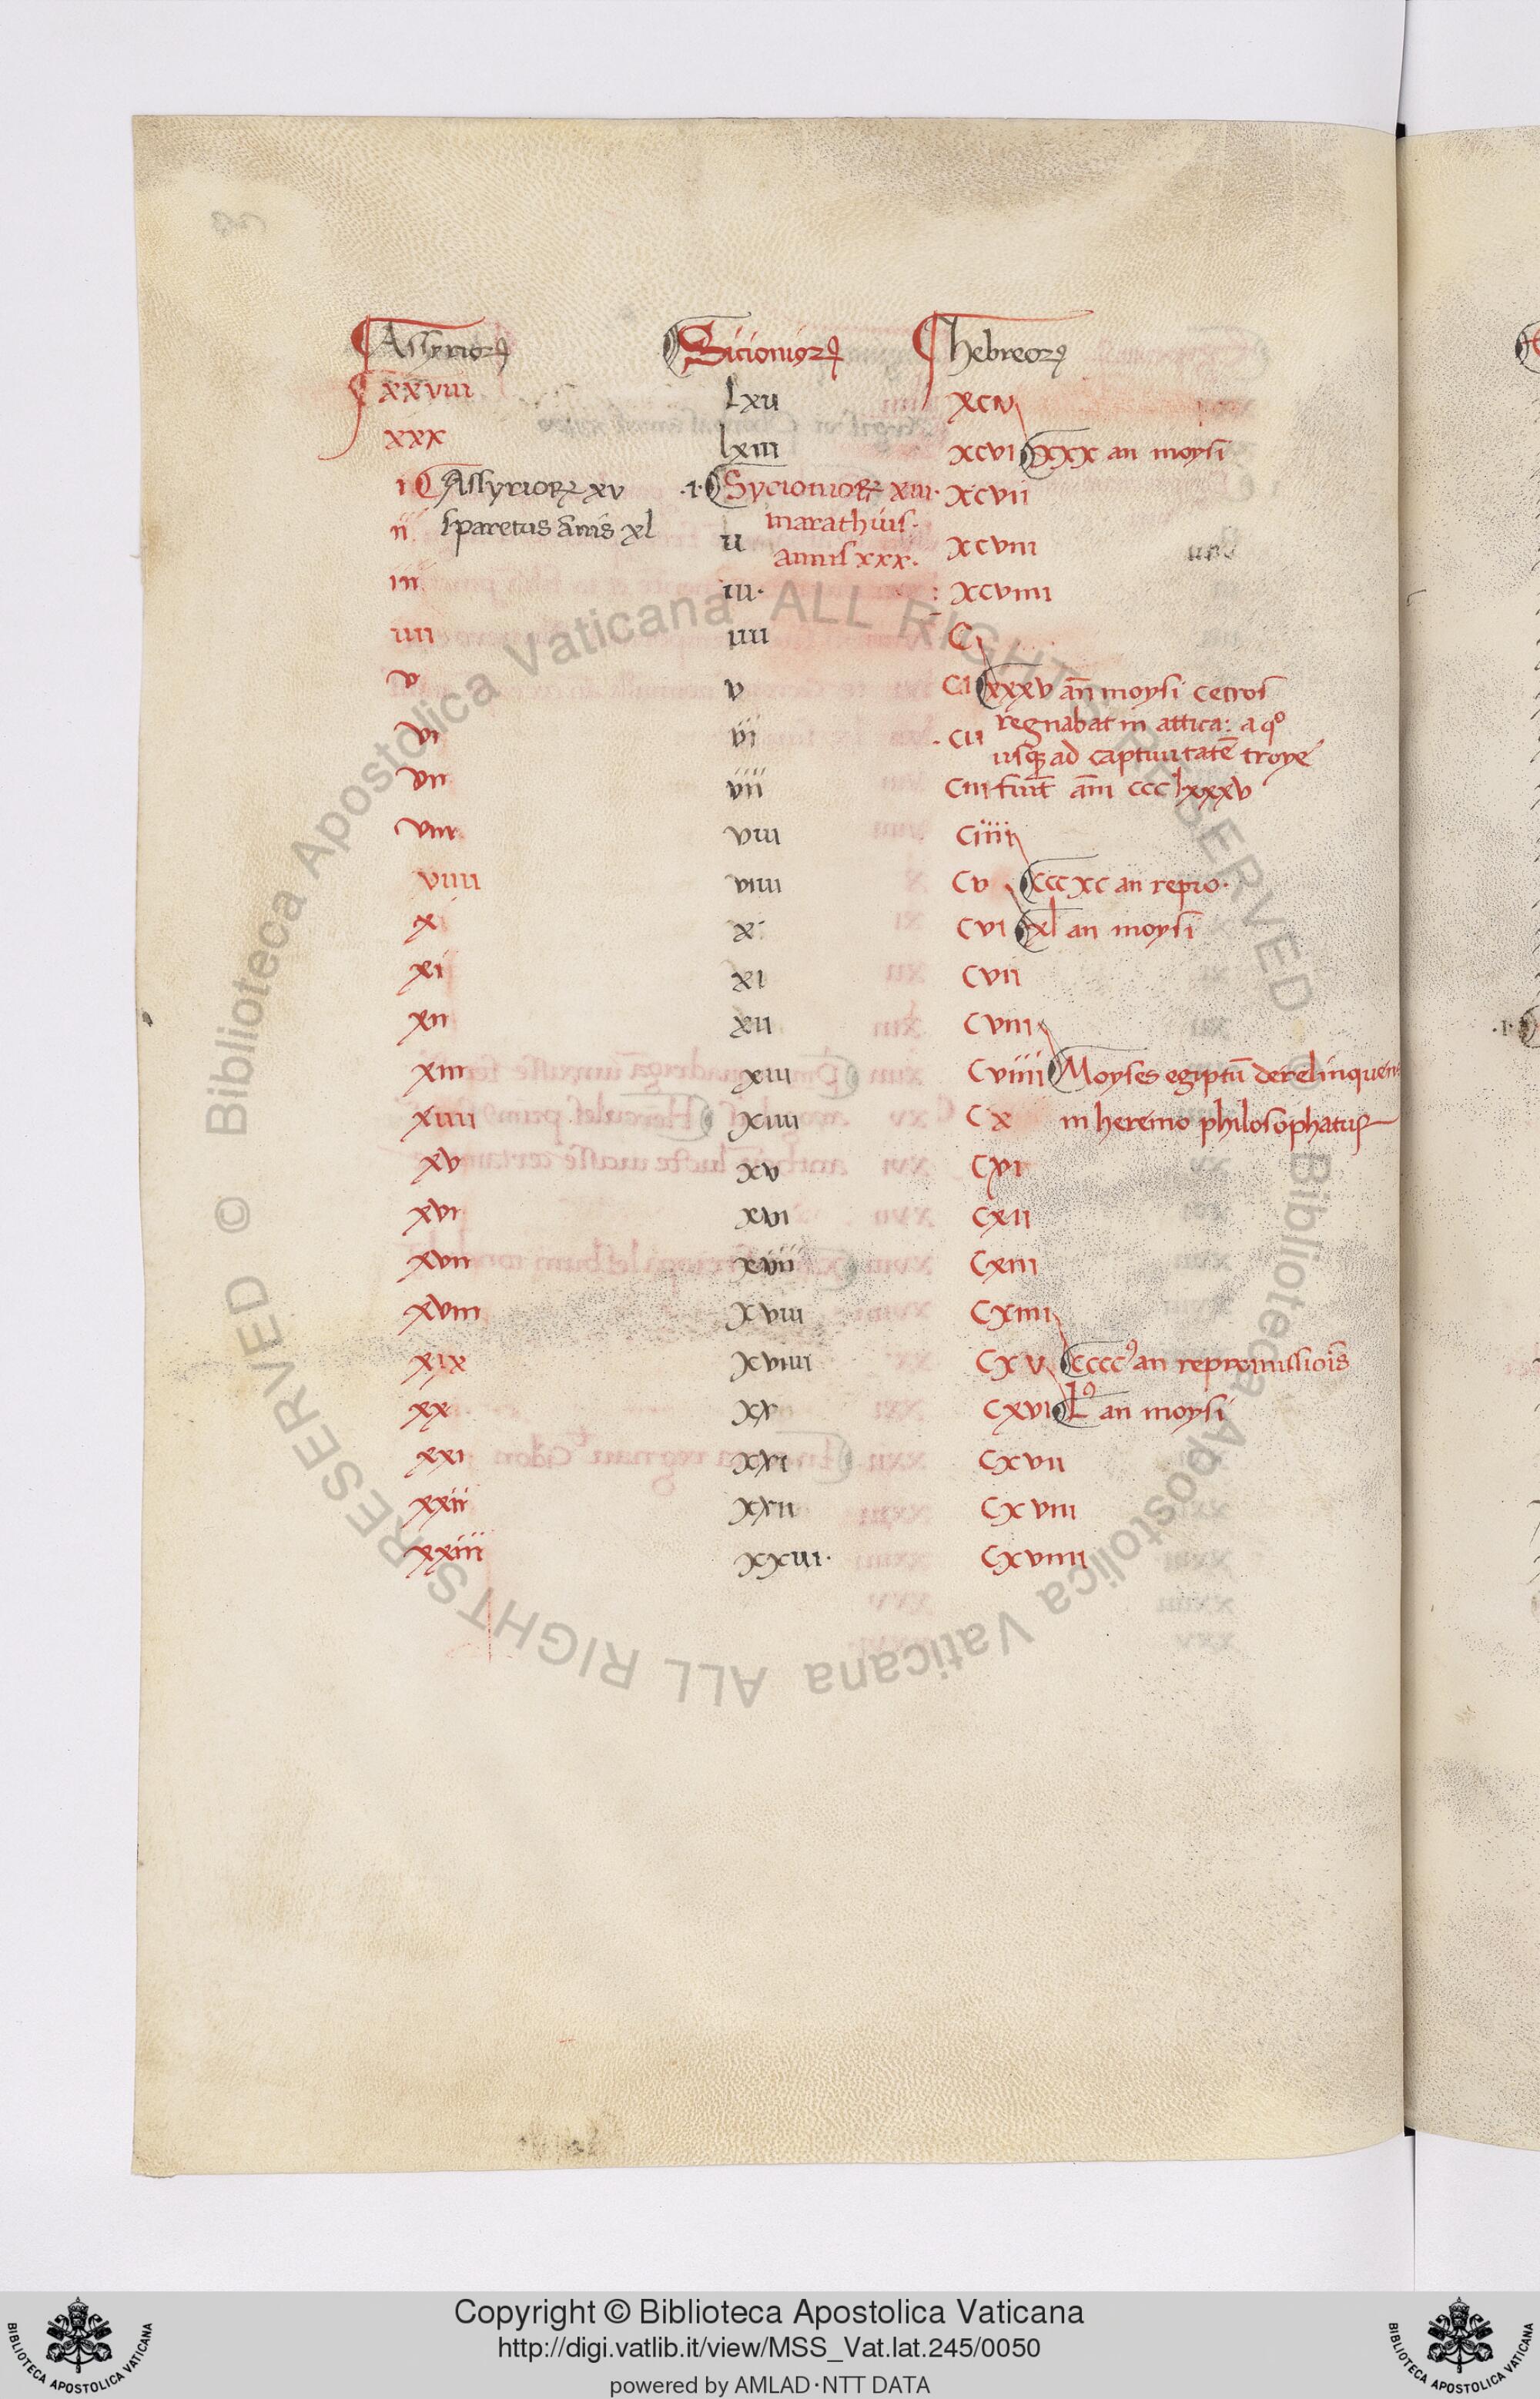 Assyrioꝝ Sicionioꝝ hebreoꝝ
xxviiii lxii xcv
xxx lxiii xcvi xxx an moysi
i Assyrioꝝ xv .1. Sycionioꝝ xiii. xcvii
ii sparetus ānis xl marathius.
ii annis xxx. xcviii
iii iii. xcviiii
iiii iiii C
v v Ci xxxv an̄ moysi cecros
regnabat in attica: a qº
vi vi cii
usqꝫ ad captiuitatē troye
vii vii Ciii fiūt ānı ccclxxxv
viii viii Ciiii
viiii viiii Cv cccxc an repro.
x x Cvi xl an moysi
xi xi Cvii
xii xii Cviii
xiii xiii Cviiii Moyses egiptū derelinquens
xiiii xiiii Cx in heremo philosophatur
xv xv Cxi
xvi xvi Cxii
xvii xvii Cxiii
xviii xviii Cxiiii
xix xviiii Cxv cccc an repromissiōis
xx xx Cxvi L an moysi
xxi xxi Cxvii
xxii xxii Cxviii
xxiii xxiii. Cxviiii
© Biblioteca Apostolica Vaticana ALL RIGHTS RESERVED
© Biblioteca Apostolica Vaticana ALL RIGHTS RESERVED
Copyright © Biblioteca Apostolica Vaticana
http://digi.vatlib.it/view/MSS_Vat.lat.245/0050
powered by AMLAD·NTT DATA
BIBLIOTECA APOSTOLICA VATICANA
BIBLIOTECA APOSTOLICA VATICANA